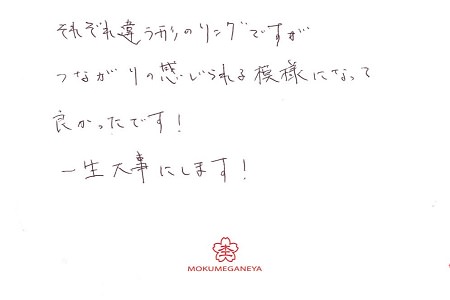 それぞれ違う形のリングですが
つながりの感じられる模様になって
良かったです!
一生大事にします!
MOKUMEGANEYA